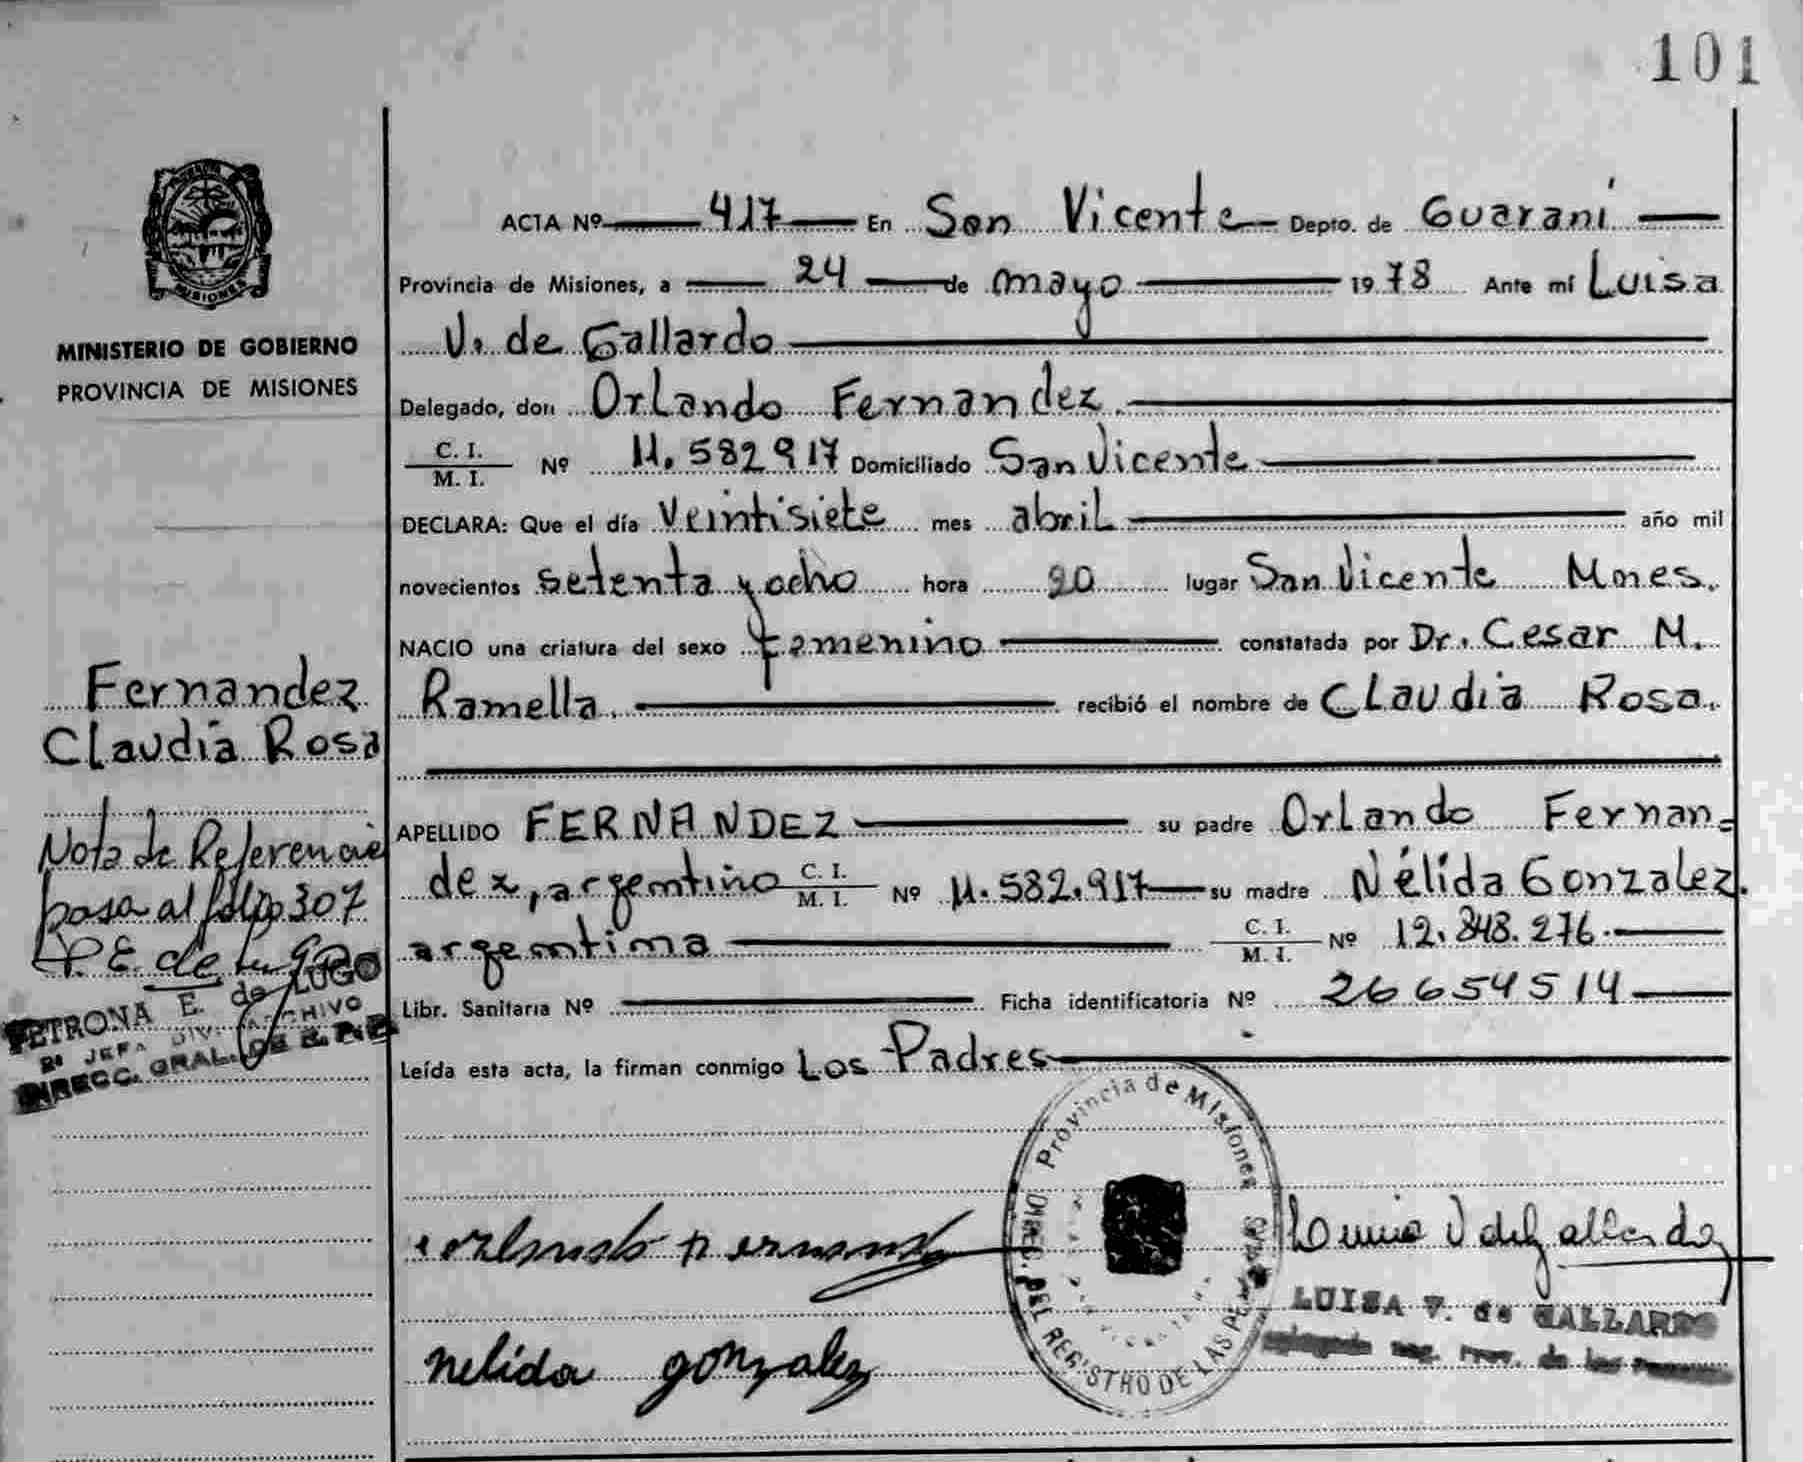 101
MISIONES
MINISTERIO DE GOBIERNO
PROVINCIA DE MISIONES
Fernandez
Claudia Rosa
Nota de Referencia
pasa al folio 307
P. E. de Lugo
PETRONA E. de LUGO
2ª JEFA DIV. ARCHIVO
DIRECC. GRAL. DE R. P. P.
ACTA Nº 417 En San Vicente Depto. de Guaraní
Provincia de Misiones, a 24 de mayo 1978 Ante mí Luisa
V. de Gallardo
Delegado, don Orlando Fernandez
C. I. / M. I. Nº 11.582917 Domiciliado San Vicente
DECLARA: Que el día veintisiete mes abril año mil
novecientos setenta y ocho hora 20 lugar San Vicente Mnes.
NACIO una criatura del sexo femenino constatada por Dr. Cesar M.
Ramella. recibió el nombre de Claudia Rosa.
APELLIDO FERNANDEZ su padre Orlando Fernan=
dez, argentino C. I. / M. I. Nº 11.582.917 su madre Nélida Gonzalez.
argentina C. I. / M. I. Nº 12.848.276.
Libr. Sanitaria Nº Ficha identificatoria Nº 26654514
Leída esta acta, la firman conmigo Los Padres
Provincia de Misiones
DIREC. DEL REGISTRO DE LAS PERSONAS
orlando Fernandez
Luisa V de Gallardo
LUISA V. de GALLARDO
nelida gonzalez